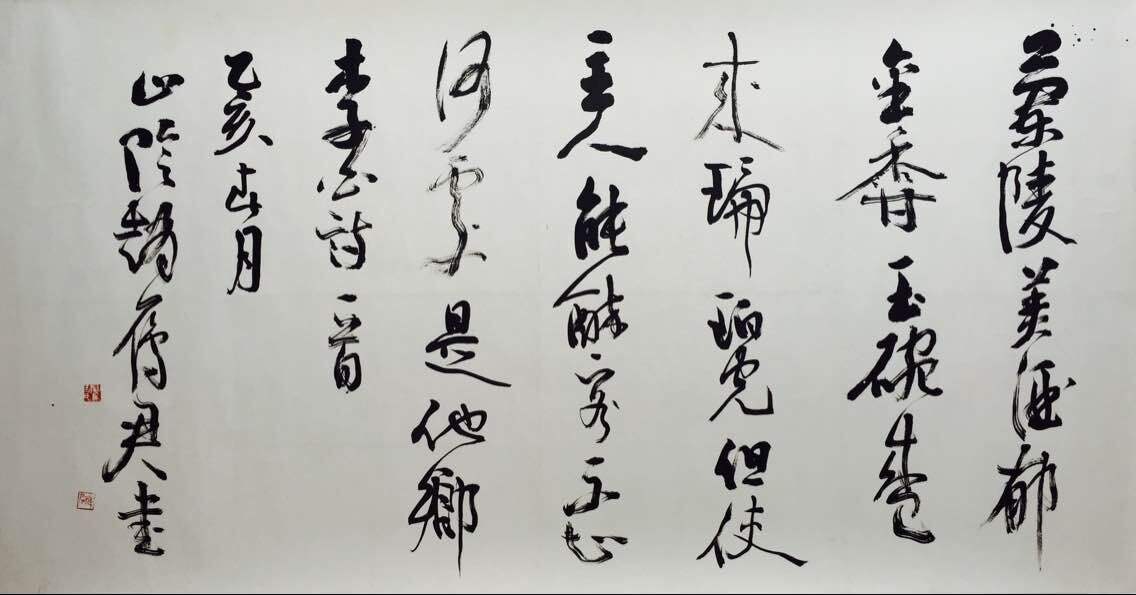 蘭陵美酒郁
金香玉碗盛
來琥珀光但使
主人能醉客不知
何處是他鄉
李白詩一首
乙亥春月
山陰趙雁君書